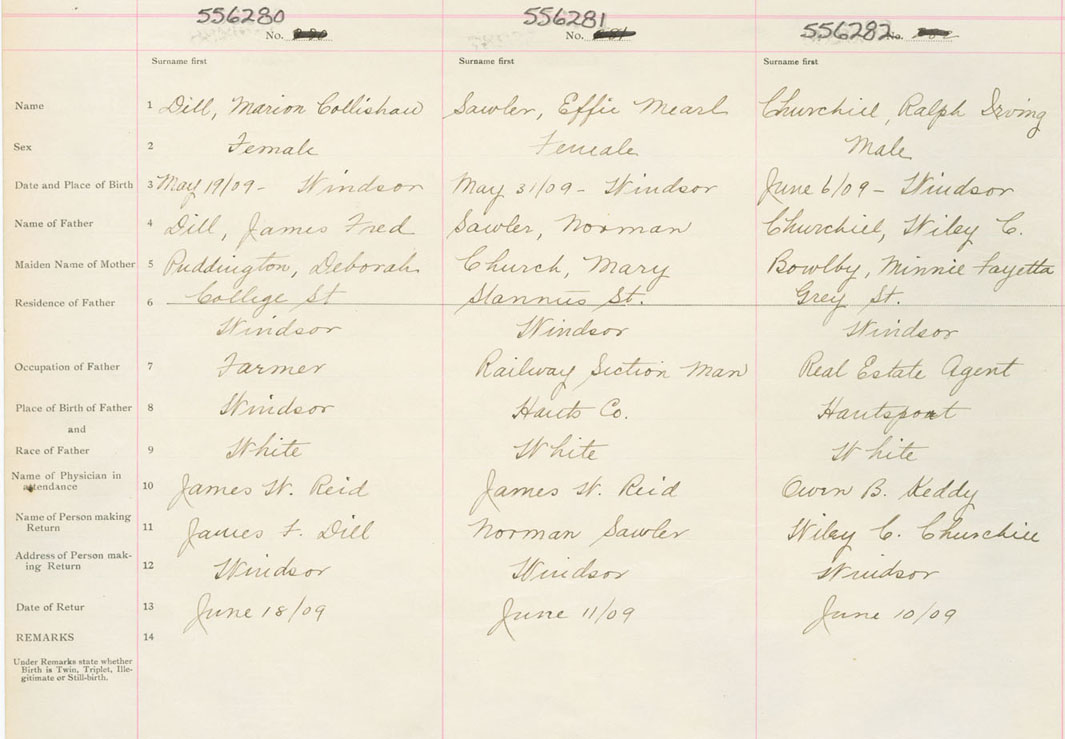 556280 556281 556282
No. No. No.
Surname first Surname first Surname first
Name 1 Dill, Marion Collishaw Sawler, Effie Mearl Churchill, Ralph Irving
Sex 2 Female Female Male
Date and Place of Birth 3 May 19/09 - Windsor May 31/09 - Windsor June 6/09 - Windsor
Name of Father 4 Dill, James Fred Sawler, Norman Churchill, Wiley C.
Maiden Name of Mother 5 Puddington, Deborah Church, Mary Bowlby, Minnie Fayetta
Residence of Father 6 College St Stannus St. Grey St.
Windsor Windsor Windsor
Occupation of Father 7 Farmer Railway Section Man Real Estate Agent
Place of Birth of Father 8 Windsor Hants Co. Hantsport
and
Race of Father 9 White White White
Name of Physician in
attendance 10 James W. Reid James W. Reid Owen B. Keddy
Name of Person making
Return 11 James F. Dill Norman Sawler Wiley C. Churchill
Address of Person mak-
ing Return 12 Windsor Windsor Windsor
Date of Retur 13 June 18/09 June 11/09 June 10/09
REMARKS 14
Under Remarks state whether
Birth is Twin, Triplet, Ille-
gitimate or Still-birth.